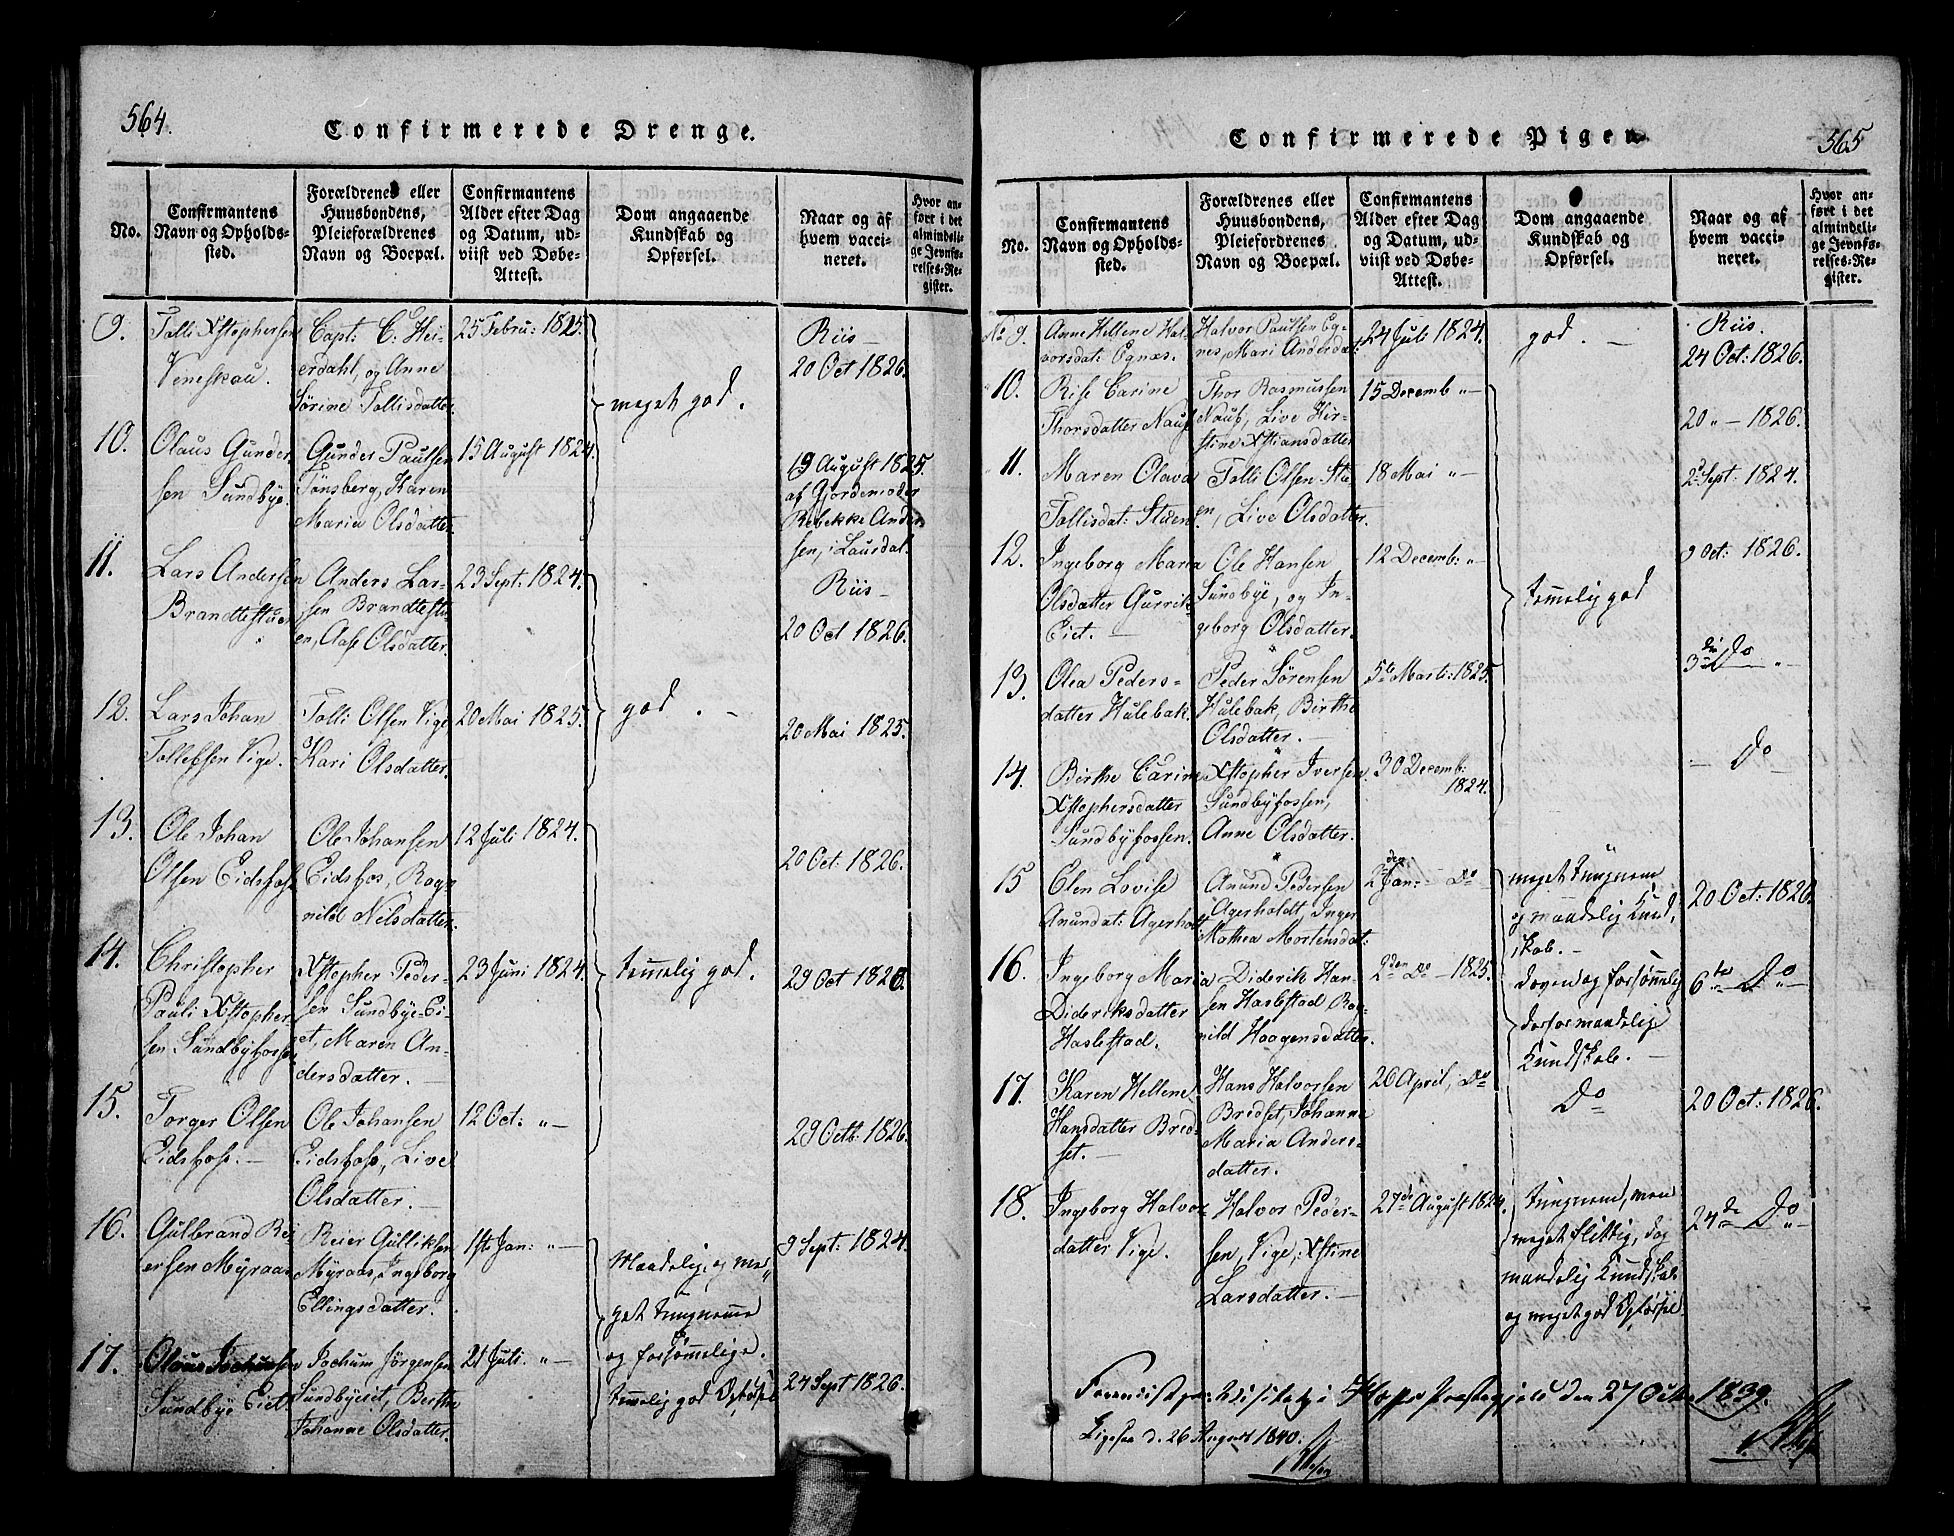 564.
Confirmerede Drenge.
No.
Confirmantens
Navn og Opholds-
sted.
Forældrenes eller
Huusbondens,
Pleieforældrenes
Navn og Boepæl.
Confirmantens
Alder efter Dag
og Datum, ud-
viist ved Døbe-
Attest.
Dom angaaende
Kundskab og
Opførsel.
Naar og af
hvem vacci-
neret.
Hvor an-
ført i det
almindeli-
ge Jevnfø-
relses-Re-
gister.
9.
Tolli Xstophersen
Veneskau.
Capt: C. Hei-
erdahl, og Anne
Sörine Tollisdatter
25 Febru: 1825.
meget god.
Riis -
20 Oct 1826.
10.
Olaus Gunder-
sen Sundbye.
Gunder Paulsen
Tönsberg, Karen
Maria Olsdatter.
15 August 1824.
19 August 1825.
af Gjordemoder
Rebekke Ander
sen, i Lausdal.
11.
Lars Andersen
Brandtestuen
Anders Lar-
sen Brandtestu
en, Aase Olsdatter.
23 Sept: 1824.
god. -
Riis -
20 Oct 1826.
12.
Lars Johan
Tollefsen Vige.
Tolli Olsen Vige
Kari Olsdatter.
20 Mai 1825.
20 Mai 1825.
13.
Ole Johan
Olsen Eidsfoss
Ole Johansen
Eidsfos, Rag-
nild Nilsdatter.
12 Juli 1824.
temmelig god.
20 Oct: 1826.
14.
Christopher
Pauli Xstopher-
sen Sundbyfossen
Xstopher Peder-
sen Sundbye-Ei-
et, Maren An-
dersdatter. -
23 Juni 1824.
29 Oct 1826.
15.
Torger Olsen
Eidsfoss. -
Ole Johansen
Eidsfoss, Live
Olsdatter. -
12 Oct: " -
29 Octb: 1826.
16.
Gulbrand Rei-
ersen Myraas
Reier Gulliksen
Myraas, Ingeborg
Ellingsdatter.
1ste Jan: " -
Maadelig, og me-
get tungnemme
og forsømmelige.
temmelig god Opførsel
9 Sept: 1824.
17.
Olaus Jochumsen
Sundbye Eiet
Jochum Jörgensen
Sundbyeeiet, Berthe
Johanne Olsdatter.
21 Juli. " -
24 Sept 1826.
565
Confirmerede Piger.
No.
Confirmantens
Navn og Opholds-
sted.
Forældrenes eller
Huusbondens,
Pleiefordrenes
Navn og Boepæl.
Confirmantens
Alder efter Dag
og Datum, ud-
viist ved Døbe-
Attest.
Dom angaaende
Kundskab og
Opførsel.
Naar og af
hvem vacci-
neret.
Hvor an-
ført i det
almindeli-
ge Jevnfø-
relses-Re-
gister.
No 9.
Anne Hellene Hal-
vorsdat: Egnæs.
Halvor Paulsen Eg-
nes, Mari Andersdat:
24 Juli 1824.
god. -
Riis.
24 Oct: 1826.
10.
Rise Carine
Thorsdatter Nauf
Thor Rasmussen
Nauf, Live Kir-
stine Xstiansdatter
15 Decemb " -
temmelig god
20 " - 1826.
11.
Maren Olava
Tollisdat: Stuen
Tolli Olsen Stu-
en, Live Olsdatter.
18 Mai " -
2 Sept: 1824.
12.
Ingeborg Maria
Olsdatter Gurrik-
Eiet. -
Ole Hansen
Sundbye, og In-
geborg Olsdatter.
12 Decemb: " -
9 Oct: 1826.
13.
Olea Peders-
datter Hulebak.
Peder Sörensen
Hulebak, Birthe
Olsdatter. -
5te Marti: 1825.
3die Do
14.
Birthe Carine
Xstophersdatter
Sundbyfossen.
Xstopher Iversen
Sundbyfossen,
Anne Olsdatter.
30 Decemb:
1824.
- Do -
15
Elen Lovise
Anundat: Agerholt
Anund Pedersen
Agerholdt, Inger
Mathea Mortensdat:
2den Jan: - Do
meget tungnem
og maadelig Kund-
skab. -
20 Oct: 1826.
16.
Ingeborg Maria
Dideriksdatter
Haslestad.
Diderik Han-
sen Haslestad Rag-
nild Haagensdatter.
2den Do - 1825.
doven og forsømmelig
derfor maadelig
Kundskab. -
6te Do
17.
Karen Hellene
Hansdatter Bred-
set. -
Hans Halvorsen
Bredset, Johanne
Maria Anders-
datter.
26 April, Do
Do
20 Oct: 1826.
18.
Ingeborg Halvor-
datter Vige.
Halvor Peder-
sen, Vige, Xstine
Larsdatter. -
27de August 1824.
tungnem, men
meget flittig, dog
maadelig Kundskab
og meget god Opførsel
24de Do
Hoffs Præstegjeld den 27 1839.
d. 26 August 1840.